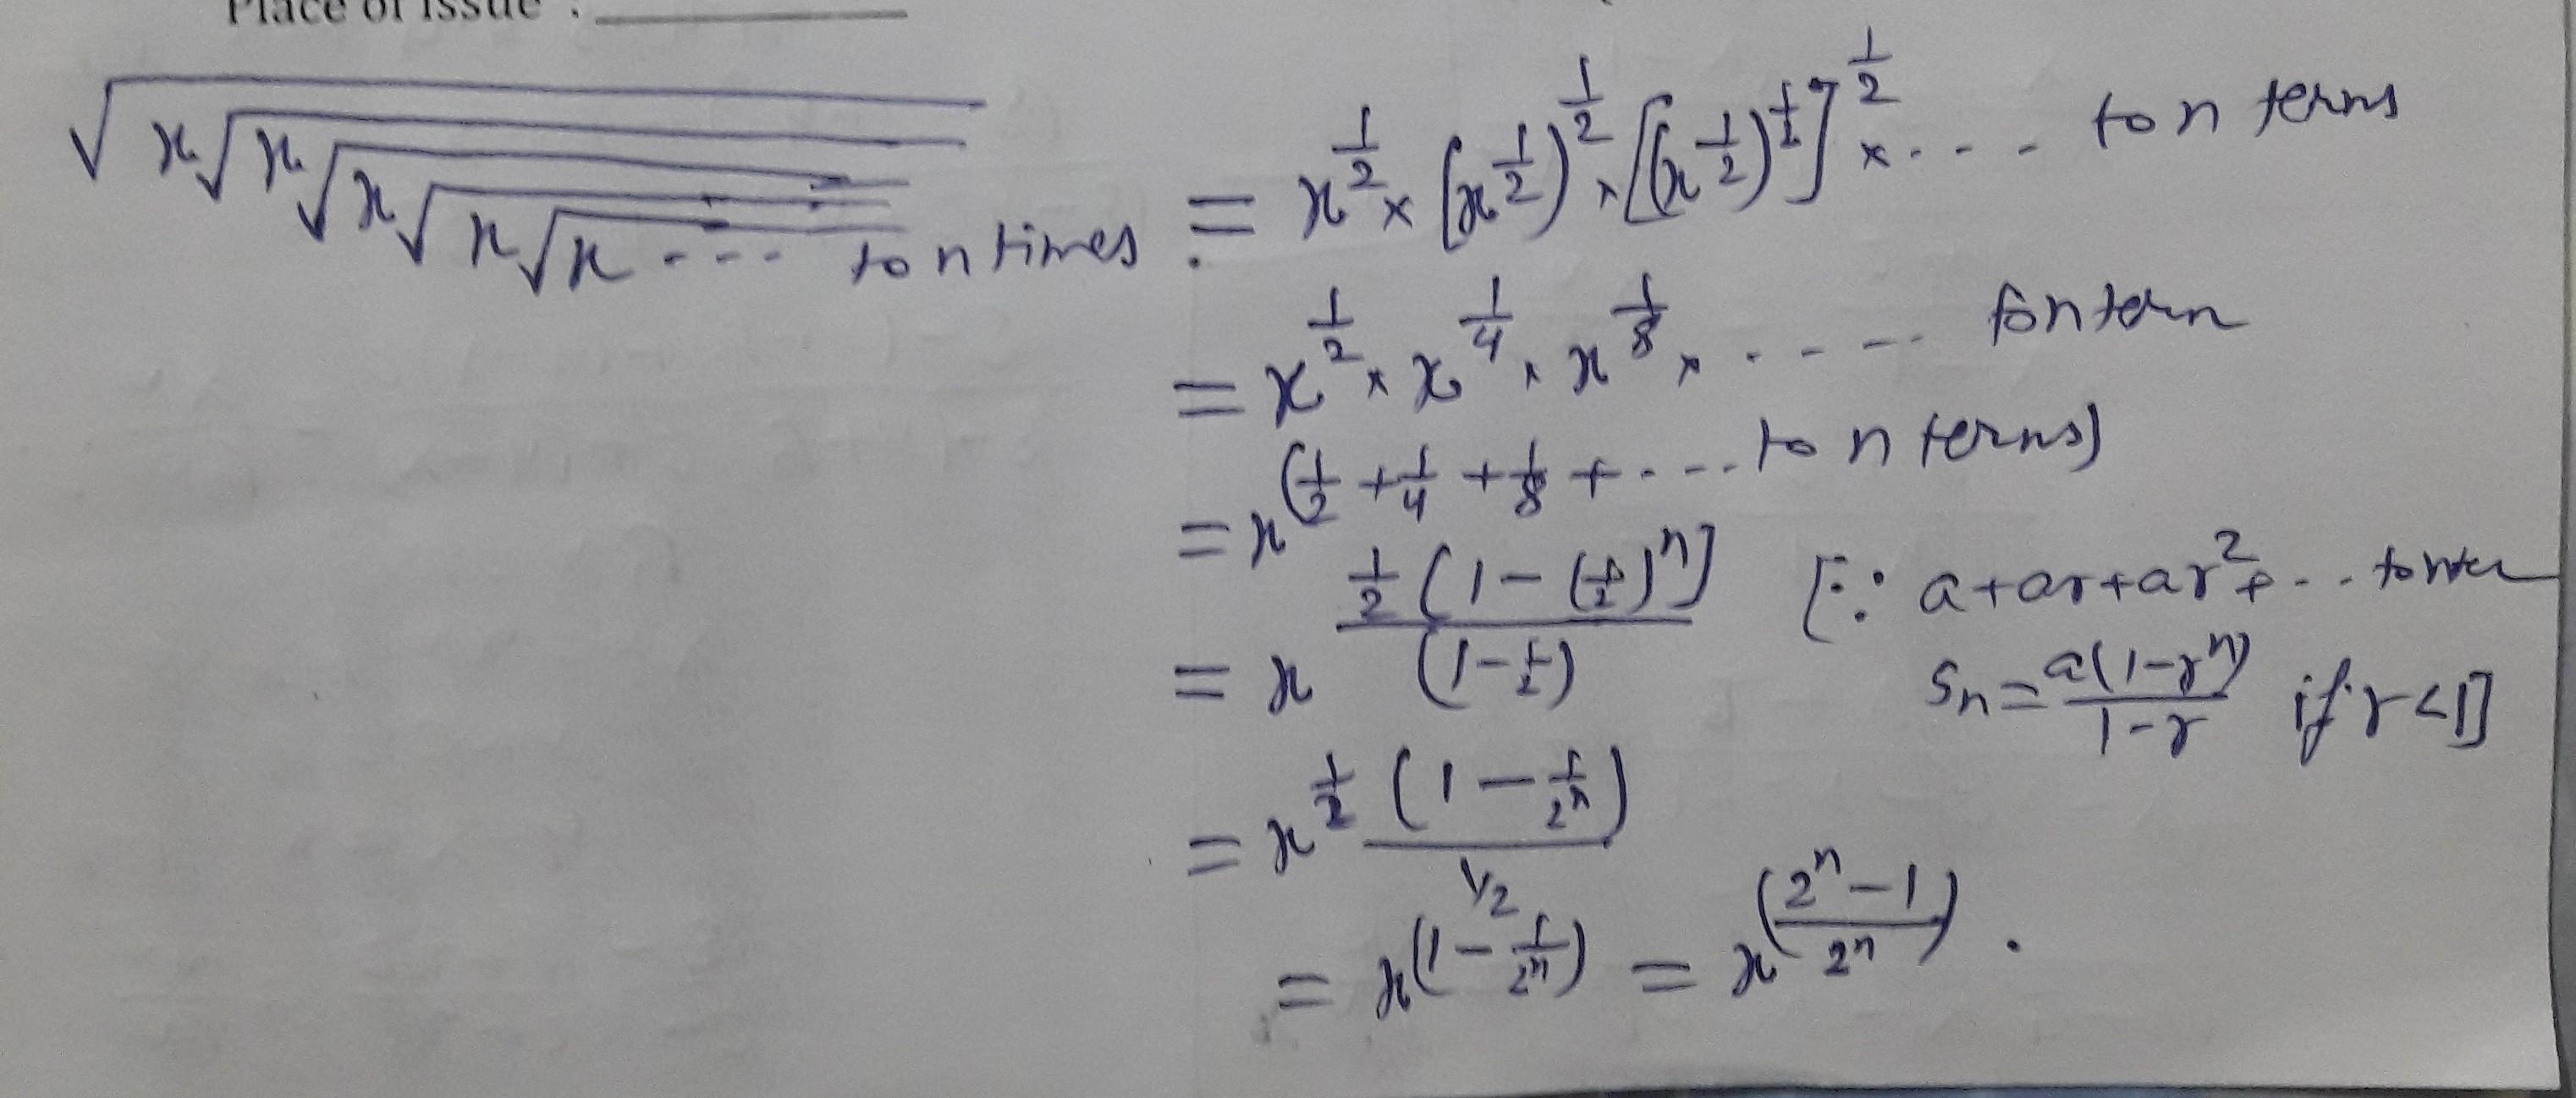 Place of issue : __________
√(x√(x√(x√(x√x ---- to n times. = x^(1/2) × [x^(1/2))^(1/2) × [(x^(1/2))^(1/2)]^(1/2) × ---- to n terms
= x^(1/2) × x^(1/4) × x^(1/8) × ----
= x^(1/2 + 1/4 + 1/8 + ---- to n terms)
= x^((1/2 (1 - (1/2)^n])/(1 - 1/2)) [∵ a + ar + ar^2 + ---
S_n = a(1-r^n)/(1-r) if r < 1]
= x^(1/2 (1 - 1/2^n)/(1/2))
= x^(1 - 1/2^n) = x^((2^n - 1)/2^n) .